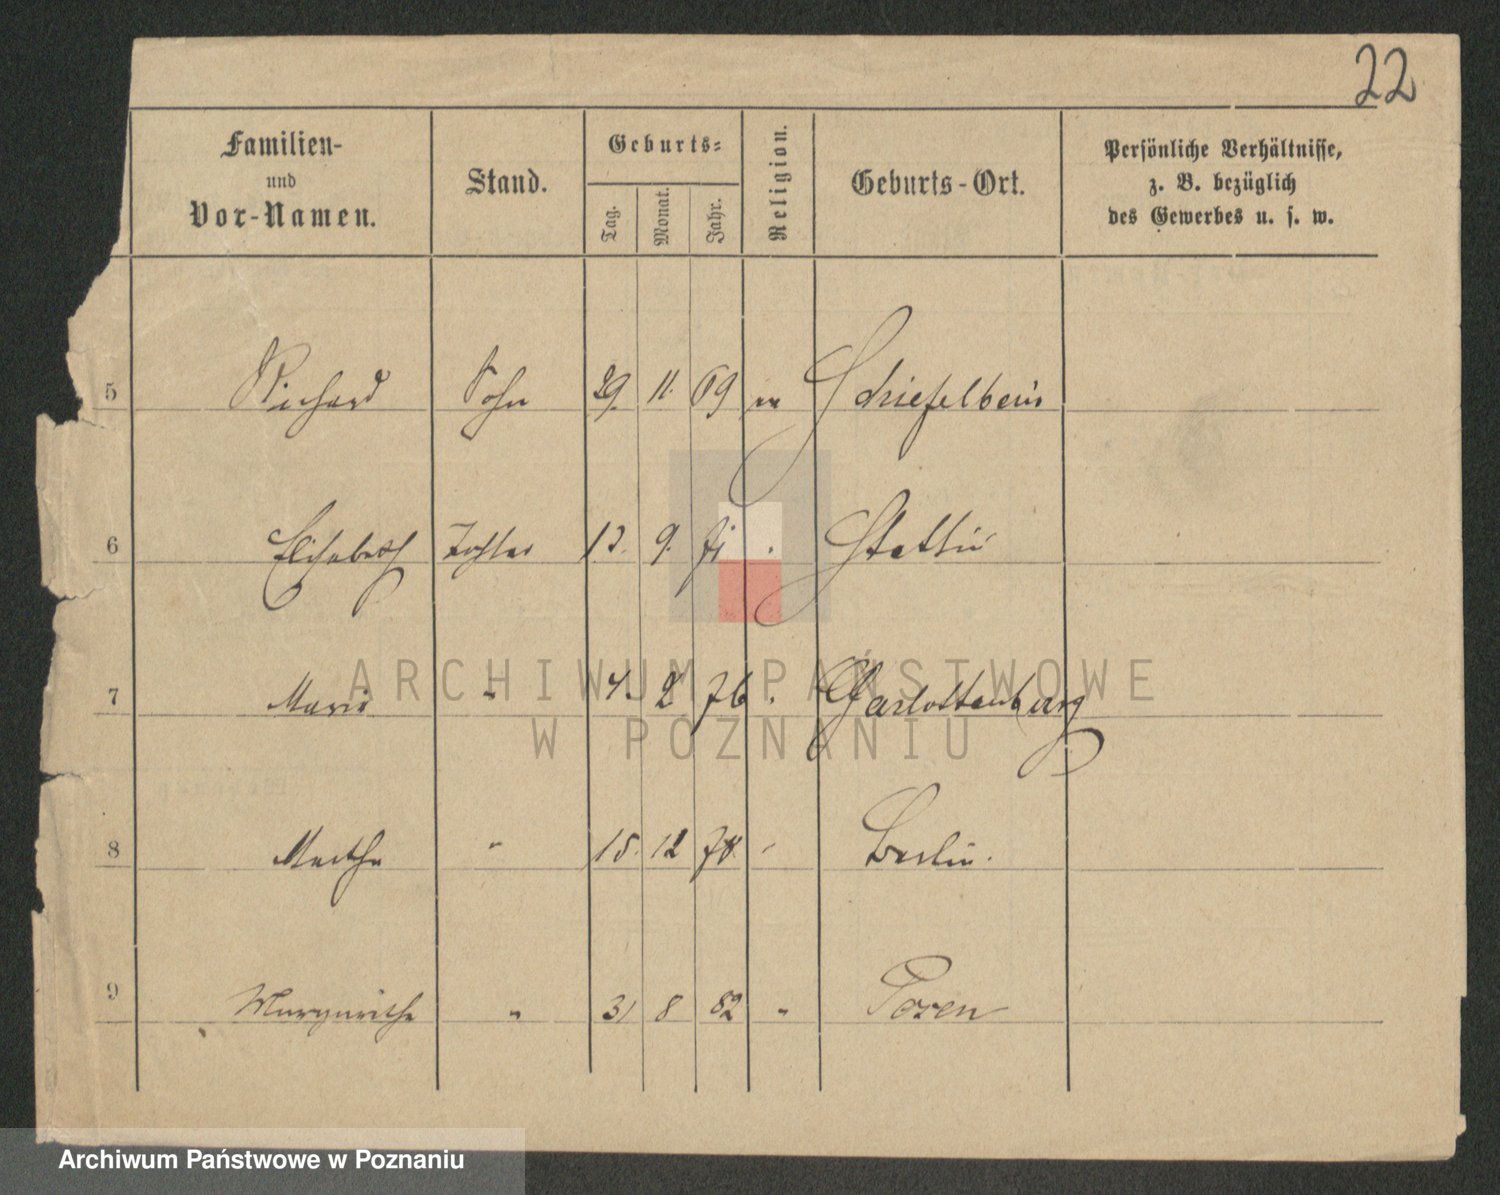 22
Familien-
und
Vor-Namen.
Stand.
Geburts-
Tag.
Monat.
Jahr.
Religion.
Geburts-Ort.
Persönliche Verhältnisse,
z. B. bezüglich
des Gewerbes u. s. w.
5 Richard Sohn 29. 11. 69 Schiefelbein
6 Elisabeth Tochter 13. 9. 71 Stettin
7 Marie " 4. 2 76 Charlottenburg
8 Marthe " 15. 12 78. " Berlin.
9 Margarethe " 31 8 82 " Posen
ARCHIWUM PAŃSTWOWE
W POZNANIU
Archiwum Państwowe w Poznaniu